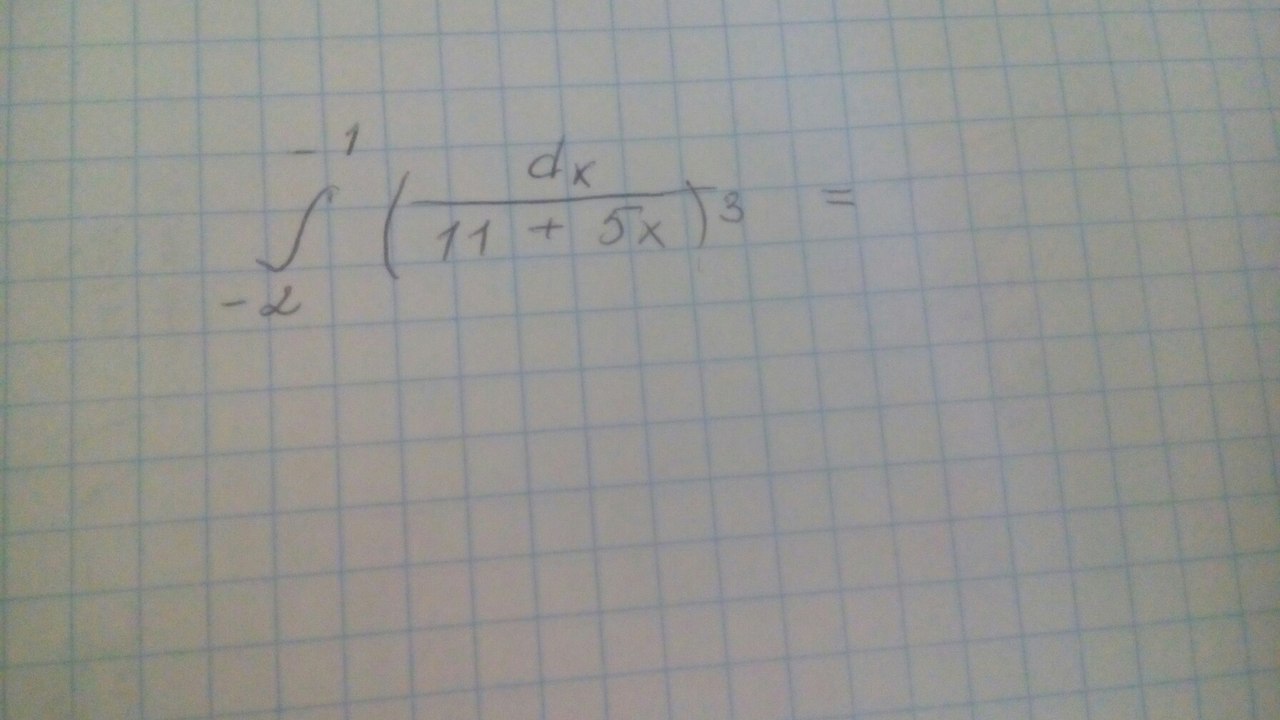 \int_{-2}^{-1} \left( \frac{dx}{11 + 5x} \right)^3 =